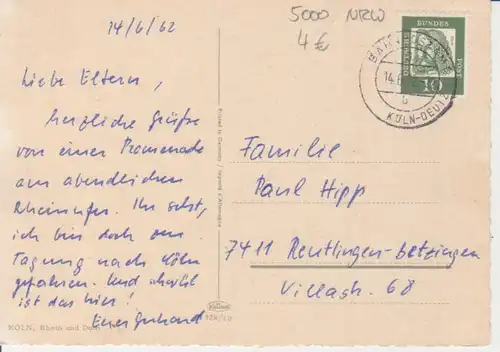 14/6/62
5000 NRW
4 €
Liebe Eltern,
herzliche Grüße
von einer Promenade
am abendlichen
Rheinufer. Ihr seht,
ich bin doch zur
Tagung nach Köln
gefahren. Und
ist das hier!
Euer Gerhard
KÖLN, Rhein und Deutz
Printed in Germany / Imprimé d'Allemagne
DEUTSCHE BUNDESPOST
10
14.6.
b
KÖLN-DEUTZ
Familie
Paul Hipp
7411 Reutlingen-Betzingen
Villastr. 68